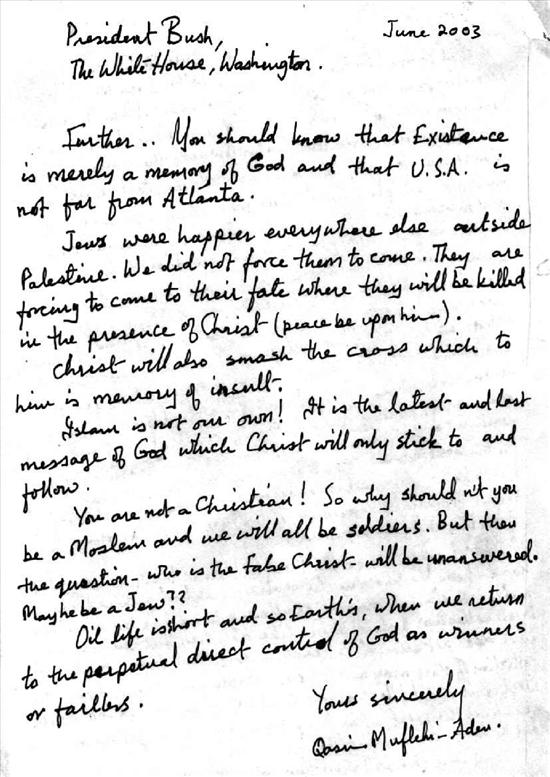 President Bush, June 2003
The White House, Washington.
Further.. You should know that Existence
is merely a memory of God and that U.S.A. is
not far from Atlanta.
Jews were happier everywhere else outside
Palestine. We did not force them to come. They are
forcing to come to their fate where they will be killed
in the presence of Christ (peace be upon him).
Christ will also smash the cross which to
him is memory of insult.
Islam is not our own! It is the latest and last
message of God which Christ will only stick to and
follow.
You are not a Christian! So why should n't you
be a Moslem and we will all be soldiers. But then
the question - who is the false Christ - will be unanswered.
May he be a Jew??
Oil life is short and so Earth's, when we return
to the perpetual direct control of God as winners
or faillers.
Yours sincerely
Qasim Muflehi - Aden.